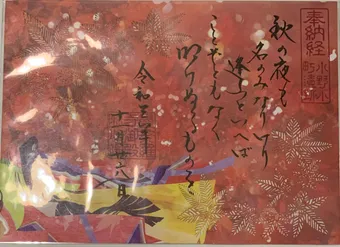 奉納経
秋の夜も
名のみなりけり
逢ふといへば
ことぞともなく
明けぬるものを
令和三年
十一月廿八日